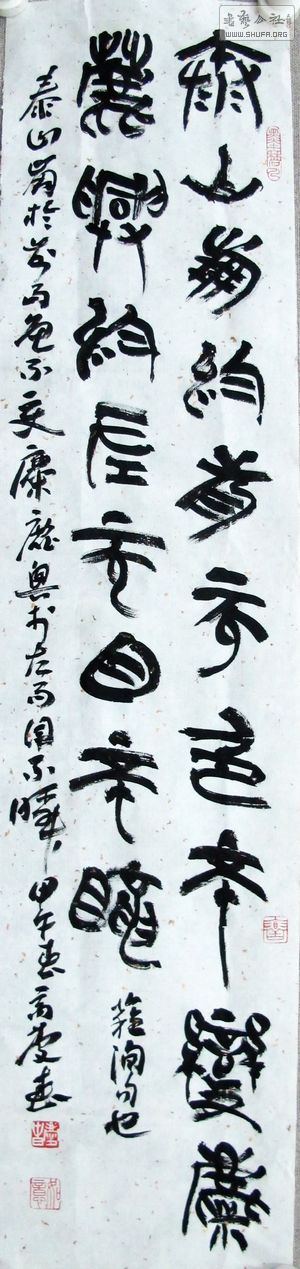 書藝公社
WWW.SHUFA.ORG
泰山崩於前而色不變麋
鹿興於左而目不瞬 蘇洵句也
泰山崩於前而色不变麋鹿興於左而目不瞬 甲午春高慶春